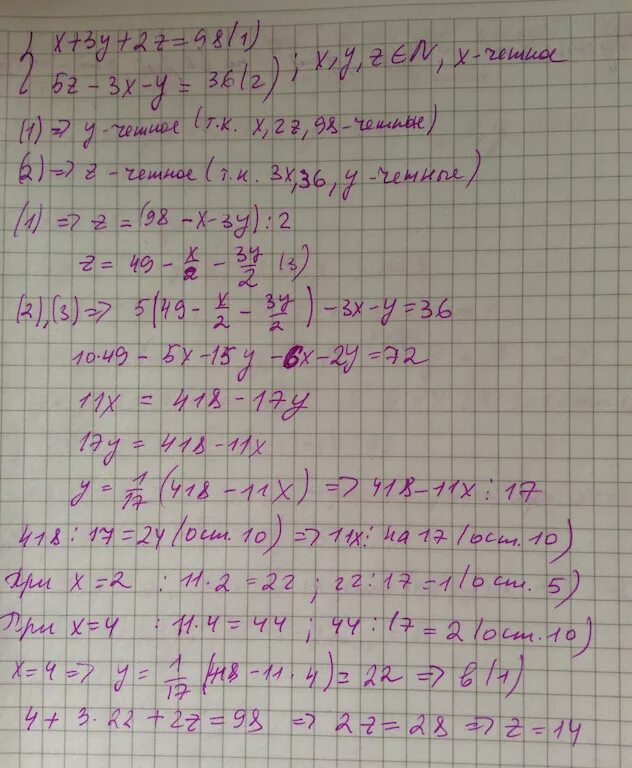 x+3y+2z=98(1)
5z-3x-y=36(2) ; x,y,z∈N, x-четное
(1)=> y-четное (т.к. x,2z,98-четные)
(2)=> z-четное (т.к. 3x,36,y-четные)
(1)=> z=(98-x-3y):2
z=49-x/2-3y/2 (3)
(2),(3)=> 5(49-x/2-3y/2)-3x-y=36
10·49-5x-15y-6x-2y=72
11x=418-17y
17y=418-11x
y=1/17(418-11x)=>418-11x⋮17
418:17=24(ост.10)=>11x⋮на 17(ост.10)
При x=2 : 11·2=22; 22:17=1(ост.5)
При x=4 : 11·4=44; 44:17=2(ост.10)
x=4=> y=1/17(418-11·4)=22=>в(1)
4+3·22+2z=98 => 2z=28=>z=14